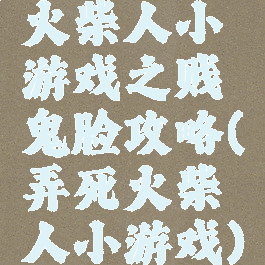 火柴人小
游戏之贱
鬼脸攻略(
弄死火柴
人小游戏)